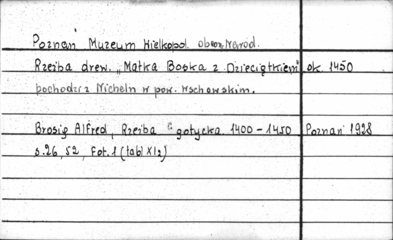 Poznań Muzeum Wielkopol. obecn. Narod.
Rzeźba drew. „Matka Boska z Dzieciątkiem" ok. 1450
pochodz. z Nicheln w pow. Wschowskim.
Brosig Alfred, Rzeźba gotycka 1400 – 1450 Poznań 1928
s. 26, 52, Fot. 1 (tabl XI₂)